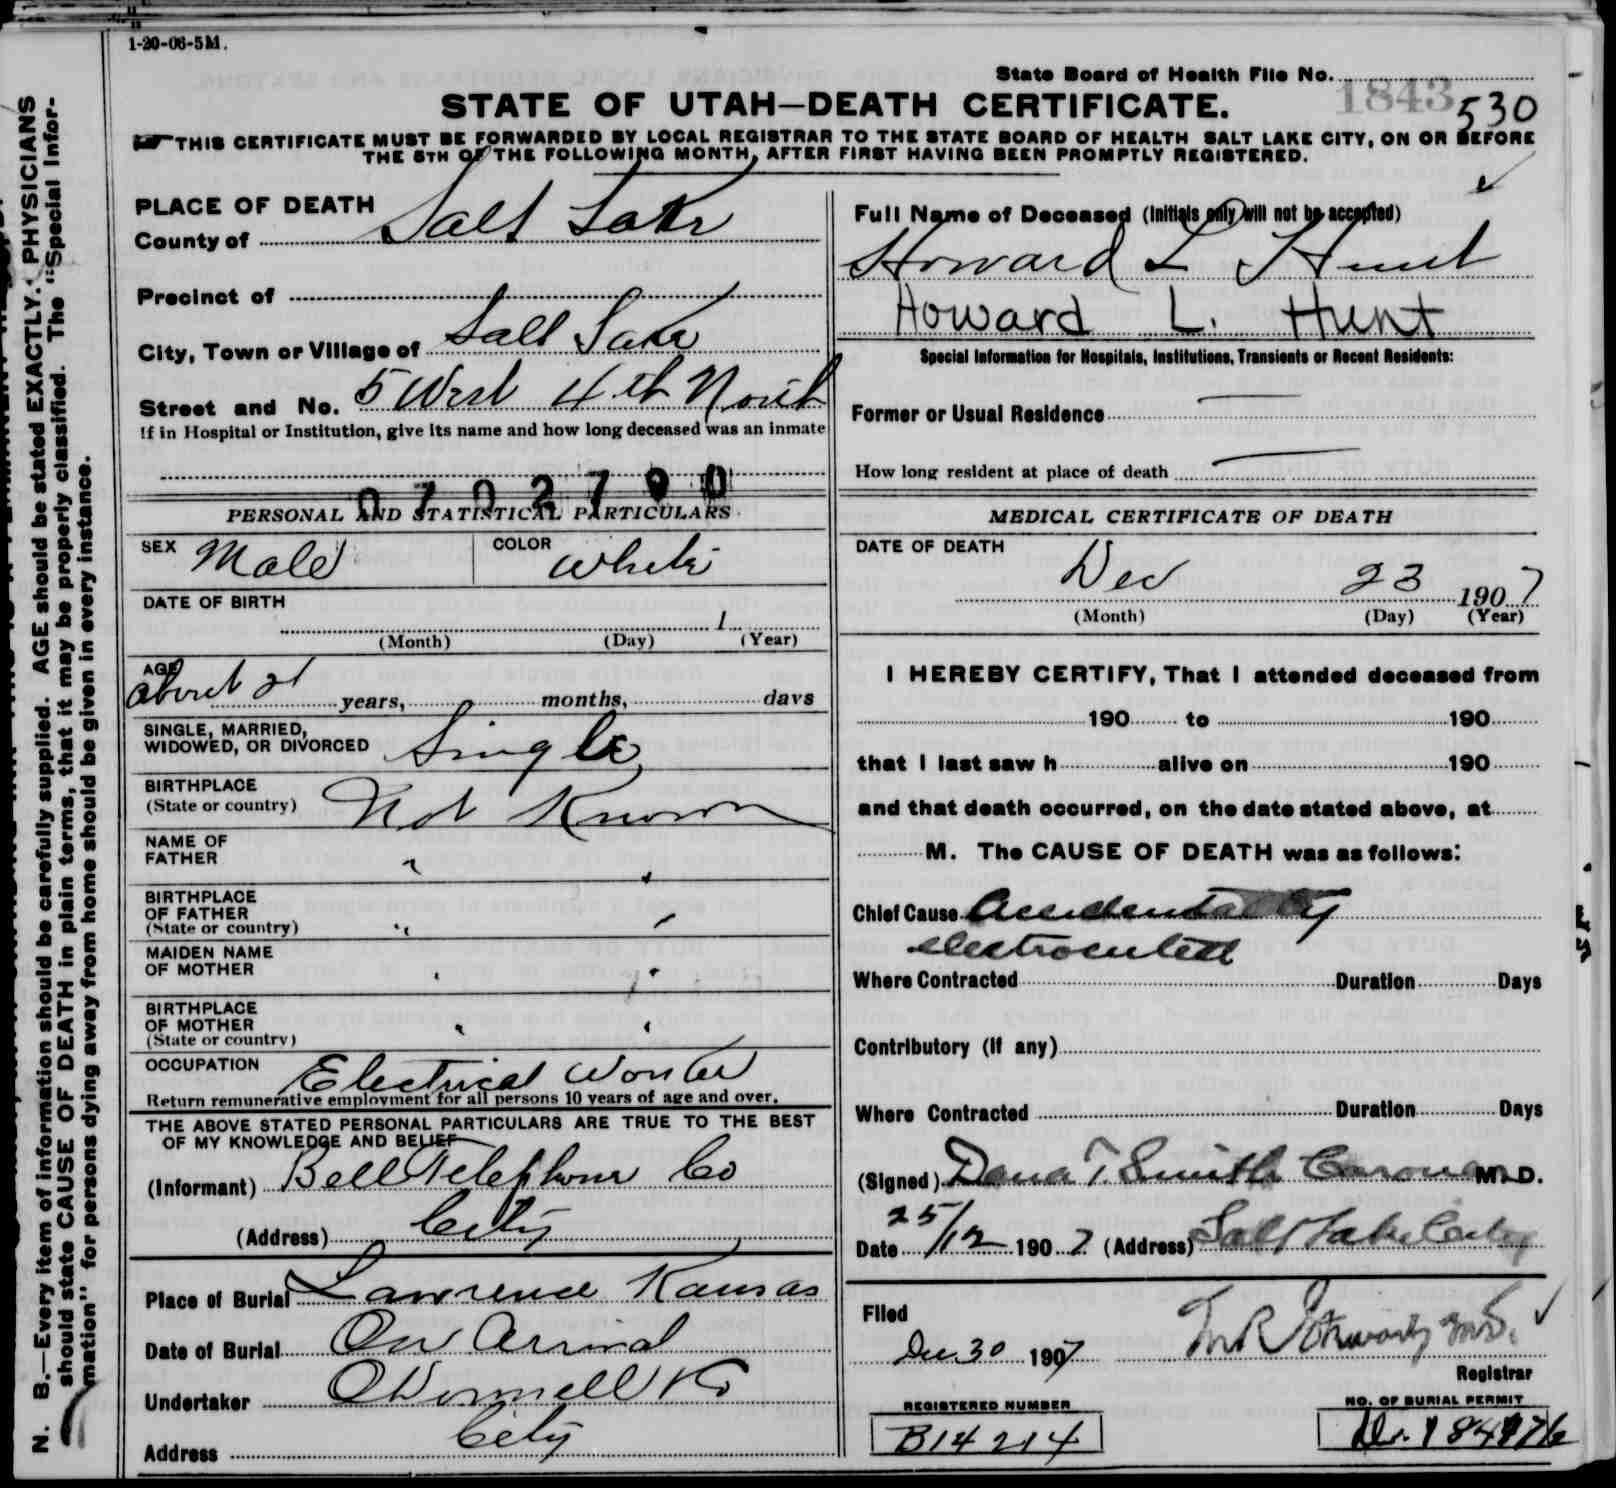 1-20-06-5M.
State Board of Health File No. 1843 530
STATE OF UTAH—DEATH CERTIFICATE.
THIS CERTIFICATE MUST BE FORWARDED BY LOCAL REGISTRAR TO THE STATE BOARD OF HEALTH SALT LAKE CITY, ON OR BEFORE
THE 5TH OF THE FOLLOWING MONTH, AFTER FIRST HAVING BEEN PROMPTLY REGISTERED.
PLACE OF DEATH
County of Salt Lake
Precinct of
City, Town or Village of Salt Lake
Street and No. 5 West 4th North
If in Hospital or Institution, give its name and how long deceased was an inmate
0702790
PERSONAL AND STATISTICAL PARTICULARS
SEX Male COLOR White
DATE OF BIRTH
1
(Month) (Day) (Year)
AGE
about 21 years, months, days
SINGLE, MARRIED,
WIDOWED, OR DIVORCED Single
BIRTHPLACE
(State or country) Not Known
NAME OF
FATHER " "
BIRTHPLACE
OF FATHER
(State or country) " "
MAIDEN NAME
OF MOTHER " "
BIRTHPLACE
OF MOTHER
(State or country) " "
OCCUPATION Electrical Worker
Return remunerative employment for all persons 10 years of age and over.
THE ABOVE STATED PERSONAL PARTICULARS ARE TRUE TO THE BEST
OF MY KNOWLEDGE AND BELIEF
(Informant) Bell Telephone Co
(Address) City
Place of Burial Lawrence Kansas
Date of Burial On Arrival
Undertaker O'Donnell & Co
Address City
Full Name of Deceased (Initials only will not be accepted)
Howard L Hunt
Howard L. Hunt
Special Information for Hospitals, Institutions, Transients or Recent Residents:
Former or Usual Residence —
How long resident at place of death —
MEDICAL CERTIFICATE OF DEATH
DATE OF DEATH
Dec 23 1907
(Month) (Day) (Year)
I HEREBY CERTIFY, That I attended deceased from
190 to 190
that I last saw h alive on 190
and that death occurred, on the date stated above, at
M. The CAUSE OF DEATH was as follows:
Chief Cause Accidentally
electrocuted
Where Contracted Duration Days
Contributory (if any)
Where Contracted Duration Days
(Signed) Dana T. Smith Coroner M. D.
Date 25/12 1907 (Address) Salt Lake City
Filed
Dec 30 1907
Registrar
REGISTERED NUMBER
B14214
NO. OF BURIAL PERMIT
N. B.—Every item of information should be carefully supplied. AGE should be stated EXACTLY. PHYSICIANS
should state CAUSE OF DEATH in plain terms, that it may be properly classified. The "Special Infor-
mation" for persons dying away from home should be given in every instance.